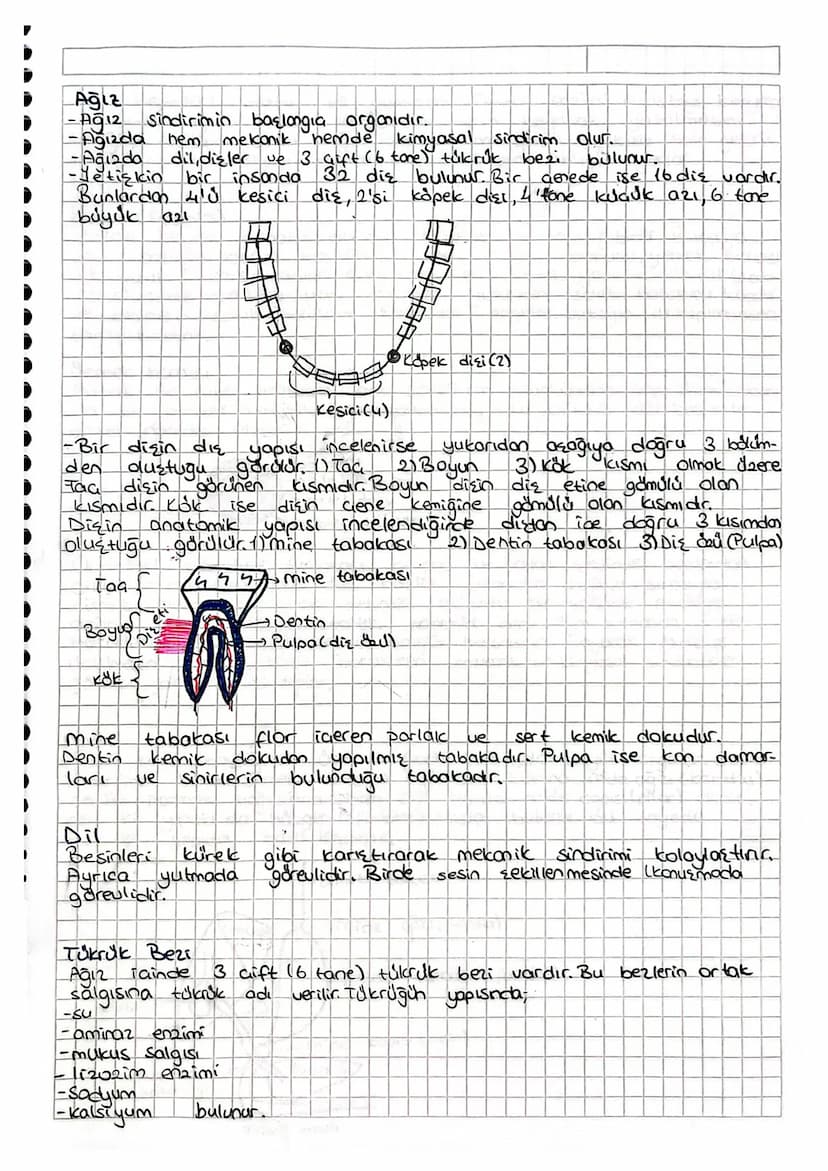 Ağız
- Ağız sindirimin başlangıcı organıdır.
- Ağızda hem mekanik hemde kimyasal sindirim olur.
- Ağızda dil,dişler ve 3 çift (6 tane) tükrük bezi bulunur.
- Yetişkin bir insanda 32 diş bulunur. Bir çenede ise 16 diş vardır.
Bunlardan 4'ü kesici diş, 2'si köpek dişi, 4'tane küçük azı, 6 tane
büyük azı
Köpek dişi (2)
Kesici (4)
- Bir dişin dış yapısı incelenirse yukarıdan aşağıya doğru 3 bölüm-
den oluştugu görülür. 1) Taç 2) Boyun 3) Kök kısmı olmak üzere
Taç dişin görünen kısmıdır. Boyun dişin diş etine gömülü olan
kısmıdır. Kök ise dişin çene kemiğine gömülü olan kısmıdır.
Dişin anatomik yapısı incelendiğinde dıştan içe doğru 3 kısımdan
oluştuğu görülür. 1) mine tabakası 2) Dentin tabakası 3) Diş özü (Pulpa)
Taç
mine tabakası
Boyun
Diş eti
Dentin
Pulpa (diş özü)
Kök
Mine tabakası flor içeren parlak ve sert kemik dokudur.
Dentin kemik dokudan yapılmış tabakadır. Pulpa ise kan damar-
ları ve sinirlerin bulunduğu tabakadır.
Dil
Besinleri kürek gibi karıştırarak mekanik sindirimi kolaylaştırır.
Ayrıca yutmada görevlidir. Birde sesin şekillenmesinde (konuşmada
görevlidir.
Tükrük Bezi
Ağız içinde 3 çift (6 tane) tükrük bezi vardır. Bu bezlerin ortak
salgısına tükrük adı verilir. Tükrüğün yapısında;
- su
- amiraz enzimi
- mukus salgısı
- lizozim enzimi
- Sodyum
- kalsiyum bulunur.